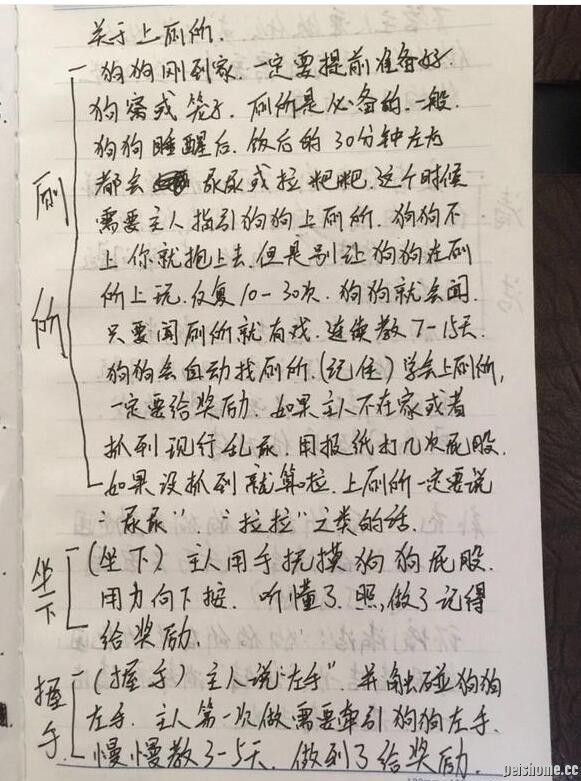 关于上厕所.
狗狗刚到家.一定要提前准备好.
狗窝或笼子.厕所是必备的.一般.
狗狗睡醒后.饭后的30分钟左右
都会尿尿或拉粑粑.这个时候
需要主人指引狗狗上厕所.狗狗不
上你就抱上去.但是别让狗狗在厕
所上玩.反复10-30次.狗狗就会闻.
只要闻厕所就有戏.连续教7-15天.
狗狗会自动找厕所.(记住)学会上厕所,
一定要给奖励.如果主人不在家或者
抓到现行乱尿.用报纸打几次屁股.
如果没抓到就算啦.上厕所一定要说
"尿尿" "拉拉"之类的话.
厕所
(坐下)主人用手抚摸狗狗屁股.
用力向下按.听懂了.照做了记得
给奖励.
坐下
(握手)主人说"左手".并触碰狗狗
左手.主人第一次做需要牵引狗狗左手.
慢慢教3-5天.做到了给奖励.
握手
peishome.cc